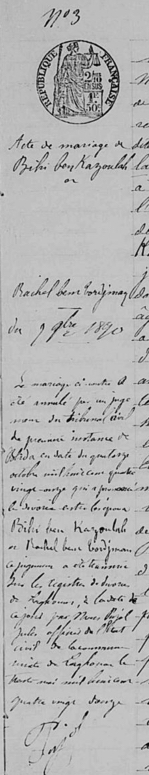 N°3
RÉPUBLIQUE FRANÇAISE
2/10 EN SUS
50c
Acte de mariage de
Bihi ben Kazoulah
et
Rachel bent Tordjman
du 9 9bre 1890
Le mariage ci contre a
été annulé par un juge
ment du tribunal civil
de première instance de
Blida en date du quatorze
octobre mil huit cent quatre
vingt onze qui a prononcé
le divorce entre les époux
Bihi ben Kazoulah
et Rachel bent Tordjman
Ce jugement a été transcrit
sur les registres de divorce
de Laghouat, à la date de
ce jour par Nous Pujol
Jules officier de l'état
civil de la commune
mixte de Laghouat le
trente mai mil huit cent
quatre vingt douze
Pujol